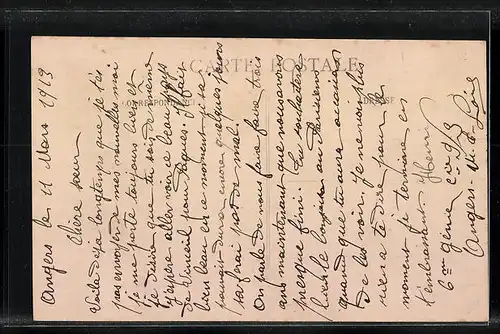 CARTE POSTALE
CORRESPONDANCE
ADRESSE
Angers le 11 Mars 1913
Chère soeur
Voila deja longtemps que je t'ai
pas envoyer de mes nouvelles, moi
je me porte toujours bien et
je désire que tu sois de même
J'espère aller voir ce beau pays
de pour Pâques. Il fait
bien beau en ce moment si sa
pouvait durer encore quelques jours
sa ferai pas de mal.
On parle de nous faire faire trois
ans maintenant que nous avons
presque fini. Tu souhaitera
bien le bonjour au
quand que tu aura occasion
de les voir. Je ne vois plus
rien a te dire pour le
moment je termine en
t'embrassant Henri
6me génie
Angers M. et Loire